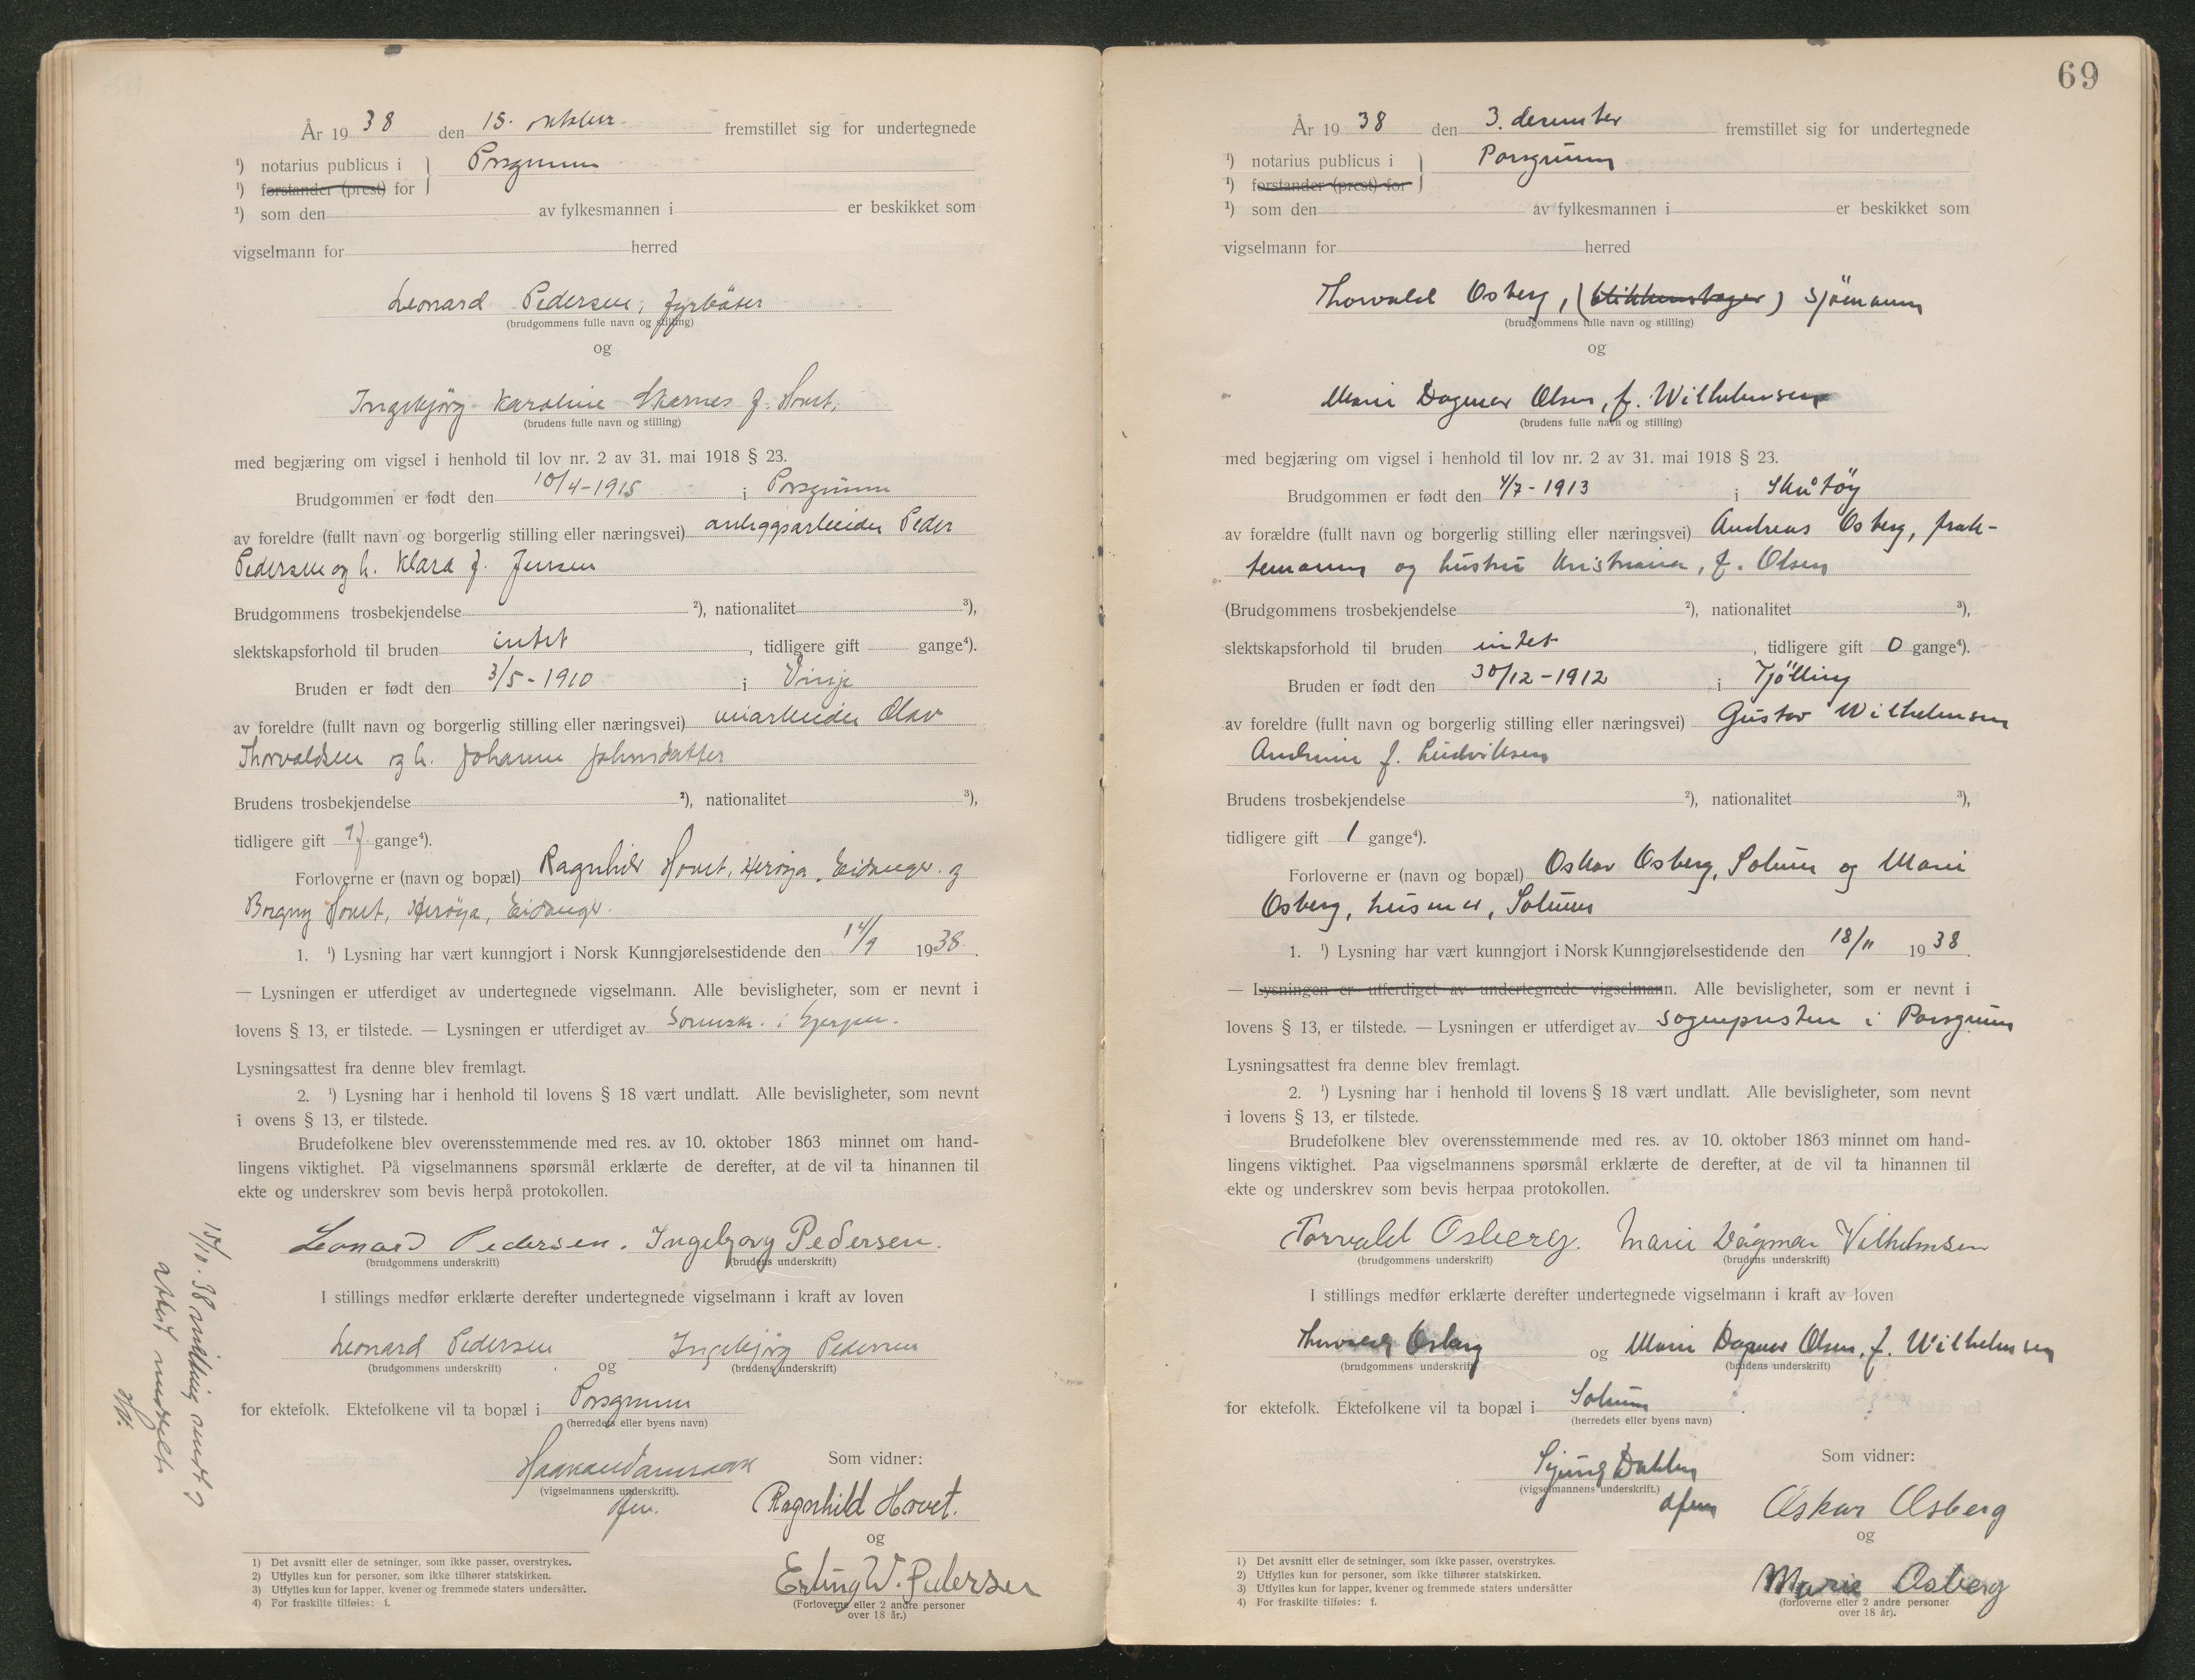 År 1938 den 15. oktober fremstillet sig for undertegnede
¹) notarius publicus i } Porsgrunn
¹) forstander (prest) for
¹) som den av fylkesmannen i er beskikket som
vigselmann for herred
Leonard Pedersen, fyrbøter
(brudgommens fulle navn og stilling)
og
Ingebjörg Karoline Skarnes f. Hovet,
(brudens fulle navn og stilling)
med begjæring om vigsel i henhold til lov nr. 2 av 31. mai 1918 § 23.
Brudgommen er født den 10/4-1915 i Porsgrunn
av foreldre (fullt navn og borgerlig stilling eller næringsvei) anleggsarbeider Peder
Pedersen og h. Klara f. Jensen
Brudgommens trosbekjendelse ²), nationalitet ³),
slektskapsforhold til bruden intet, tidligere gift gange⁴).
Bruden er født den 3/5-1910 i Vinje
av foreldre (fullt navn og borgerlig stilling eller næringsvei) veiarbeider Olav
Thorvaldsen og h. Johanne Johnsdatter
Brudens trosbekjendelse ²), nationalitet ³),
tidligere gift 1f gange⁴).
Forloverne er (navn og bopæl) Ragnhild Hovet, Herøya, Eidanger. og
Borgny Hovet, Herøya, Eidanger.
1. ¹) Lysning har vært kunngjort i Norsk Kunngjørelsestidende den 14/9 1938.
— Lysningen er utferdiget av undertegnede vigselmann. Alle bevisligheter, som er nevnt i
lovens § 13, er tilstede. — Lysningen er utferdiget av Sorenskr. i Gjerpen.
Lysningsattest fra denne blev fremlagt.
2. ¹) Lysning har i henhold til lovens § 18 vært undlatt. Alle bevisligheter, som nevnt
i ovens § 13, er tilstede.
Brudefolkene blev overensstemmende med res. av 10. oktober 1863 minnet om hand-
lingens viktighet. På vigselmannens spørsmål erklærte de derefter, at de vil ta hinannen til
ekte og underskrev som bevis herpå protokollen.
Leonard Pedersen. Ingebjørg Pedersen.
(brudgommens underskrift) (brudens underskrift)
I stillings medfør erklærte derefter undertegnede vigselmann i kraft av loven
Leonard Pedersen og Ingebjörg Pedersen
(brudgommens underskrift) (brudens underskrift)
for ektefolk. Ektefolkene vil ta bopæl i Porsgrunn
(herredets eller byens navn)
Som vidner:
(vigselmannens underskrift).
Ragnhild Hovet.
og
Erling W. Pedersen
(Forloverne eller 2 andre personer
over 18 år.)
15/10-38 melding sendt
attest
1) Det avsnitt eller de setninger, som ikke passer, overstrykes.
2) Utfylles kun for personer, som ikke tilhører statskirken.
3) Utfylles kun for lapper, kvener og fremmede staters undersåtter.
4) For fraskilte tilføies: f.
69
År 1938 den 3. desember fremstillet sig for undertegnede
¹) notarius publicus i } Porsgrunn
¹) forstander (prest) for
¹) som den av fylkesmannen i er beskikket som
vigselmann for herred
Thorvald Osberg, (blikkenslager) sjömann
(brudgommens fulle navn og stilling)
og
Marie Dagmar Olsen, f. Wilhelmsen
(brudens fulle navn og stilling)
med begjæring om vigsel i henhold til lov nr. 2 av 31. mai 1918 § 23.
Brudgommen er født den 4/7-1913 i Skåtöy
av forældre (fullt navn og borgerlig stilling eller næringsvei) Andreas Osberg, frak-
temann og hustru Kristiane, f. Olsen
(Brudgommens trosbekjendelse ²), nationalitet ³),
slektskapsforhold til bruden intet, tidligere gift 0 gange⁴).
Bruden er født den 30/12-1912 i Tjölling
av foreldre (fullt navn og borgerlig stilling eller næringsvei) Gustav Wilhelmsen
Andrine f. Ludviksen
Brudens trosbekjendelse ²), nationalitet ³),
tidligere gift 1 gange⁴).
Forloverne er (navn og bopæl) Oskar Osberg, Solum og Marie
Osberg, husmor, Solum
1. ¹) Lysning har vært kunngjort i Norsk Kunngjørelsestidende den 18/11 1938.
— Lysningen er utferdiget av undertegnede vigselmann. Alle bevisligheter, som er nevnt i
lovens § 13, er tilstede. — Lysningen er utferdiget av sognepresten i Porsgrunn
Lysningsattest fra denne blev fremlagt.
2. ¹) Lysning har i henhold til lovens § 18 vært undlatt. Alle bevisligheter, som nevnt
i lovens § 13, er tilstede.
Brudefolkene blev overensstemmende med res. av 10. oktober 1863 minnet om hand-
lingens viktighet. Paa vigselmannens spørsmål erklærte de derefter, at de vil ta hinannen til
ekte og underskrev som bevis herpaa protokollen.
Torvald Osberg. Marie Dagmar Vilhelmsen
(brudgommens underskrift) (brudens underskrift)
I stillings medfør erklærte derefter undertegnede vigselmann i kraft av loven
Thorvald Osberg og Marie Dagmar Olsen, f. Wilhelmsen
(brudgommens underskrift) (brudens underskrift)
for ektefolk. Ektefolkene vil ta bopæl i Solum.
(herredets eller byens navn)
Som vidner:
Dahlen
(vigselmannens underskrift.)
Oskar Osberg
og
Marie Osberg
(forloverne eller 2 andre personer
over 18 år).
1) Det avsnitt eller de setninger, som ikke passer, overstrykes.
2) Utfylles kun for personer, som ikke tilhører statskirken.
3) Utfylles kun for lapper, kvener og fremmede staters undersåtter
4) For fraskilte tilføies: f.